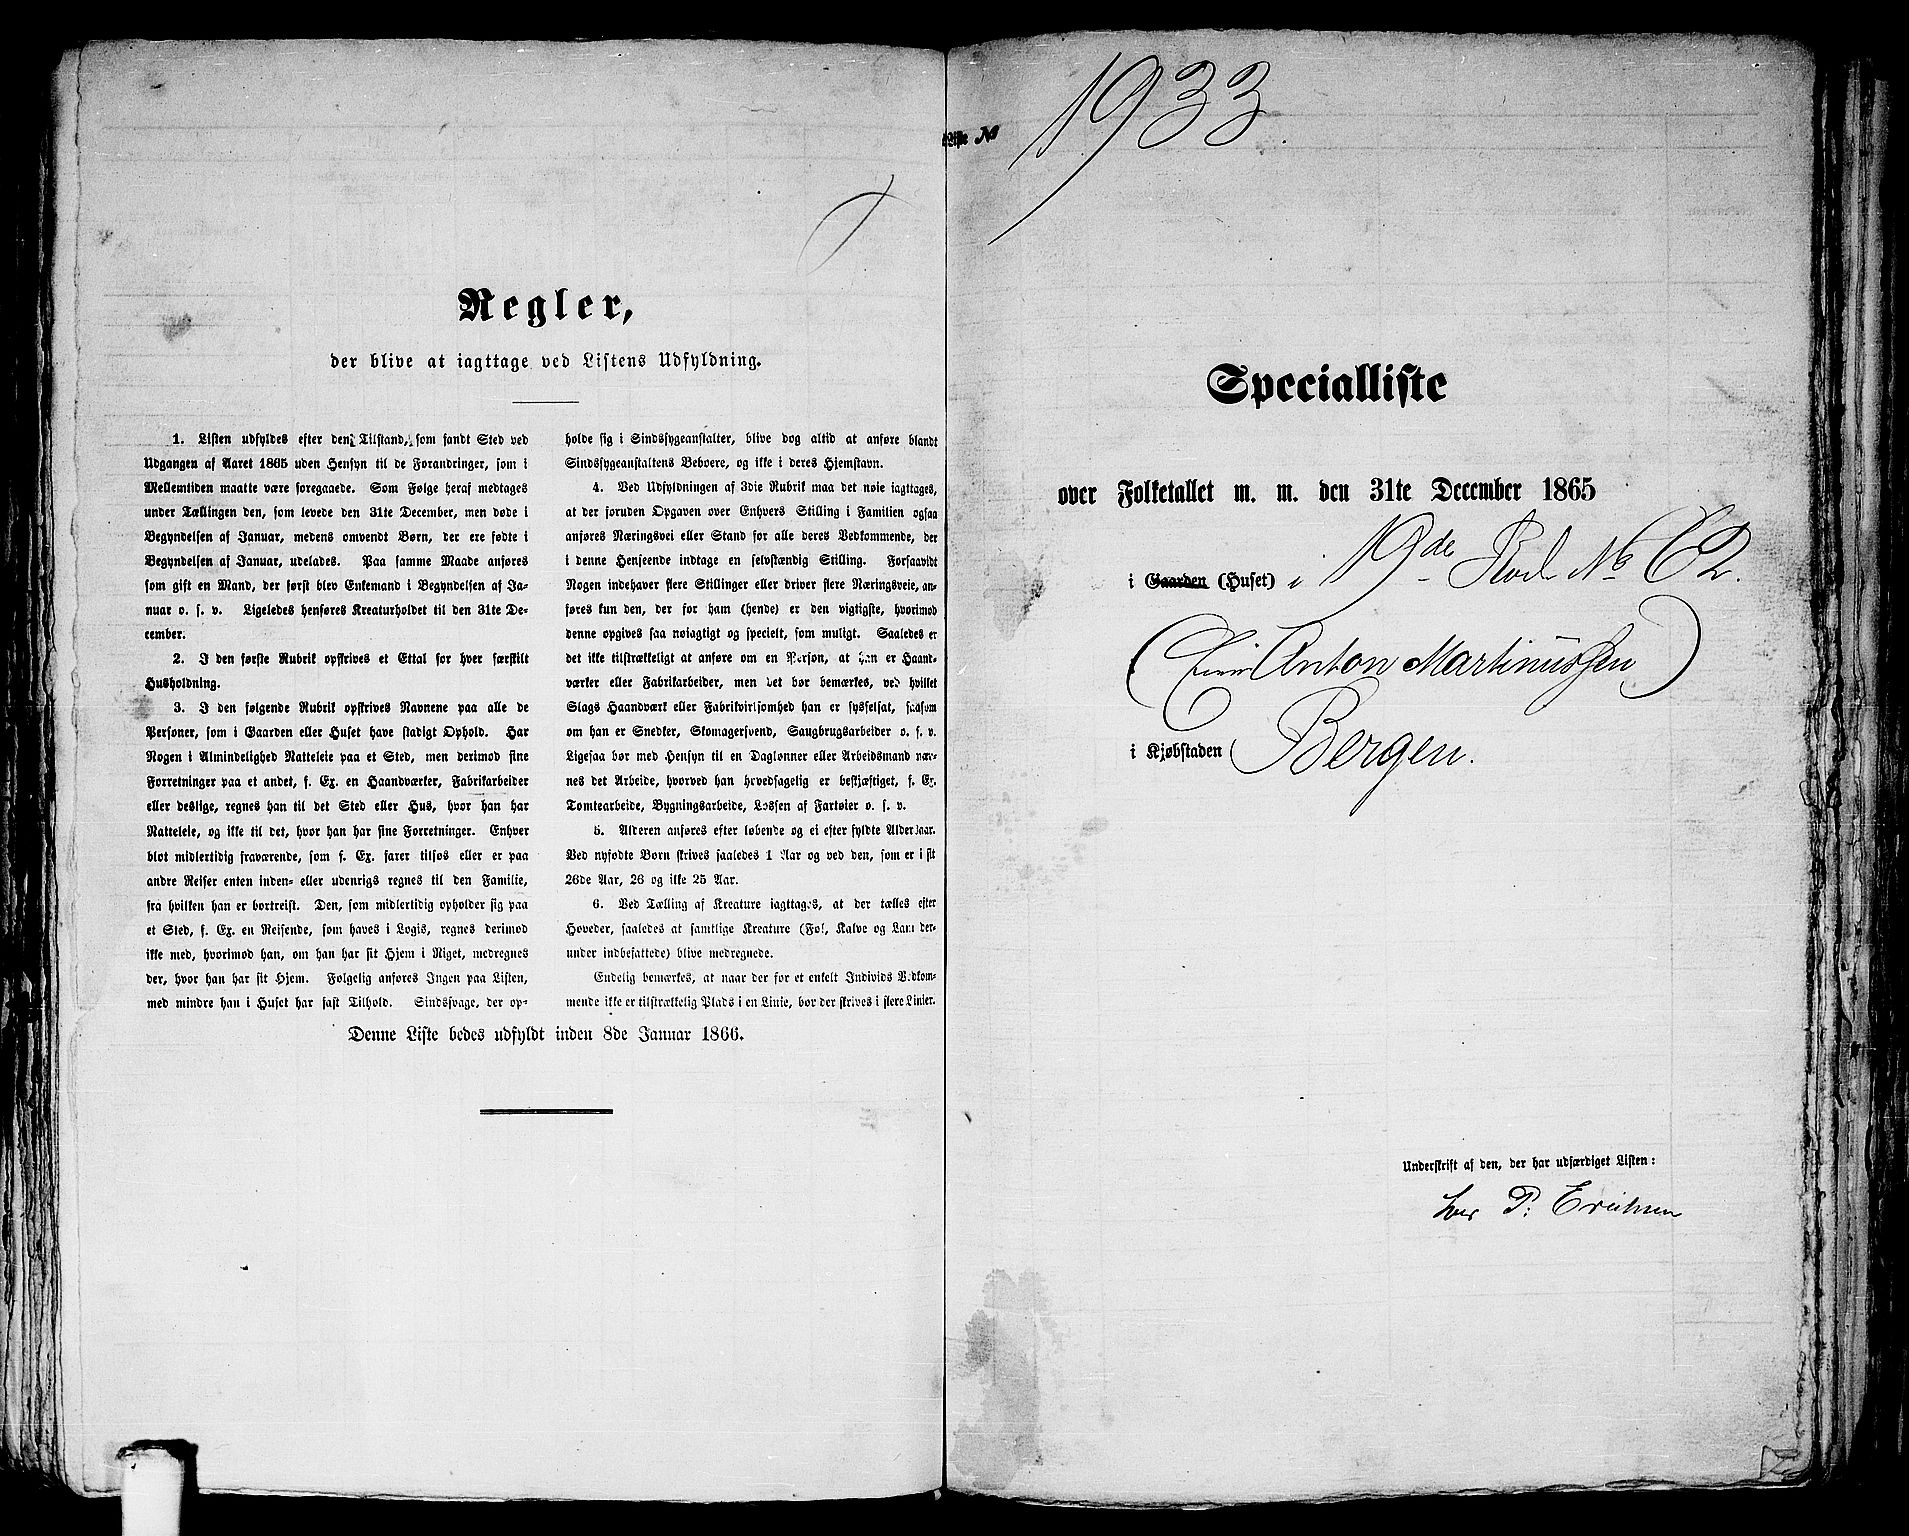 Regler,
der blive at iagttage ved Listens Udfyldning.
1. Listen udfyldes efter den Tilstand, som fandt Sted ved
Udgangen af Aaret 1865 uden Hensyn til de Forandringer, som i
Mellemtiden maatte være foregaaede. Som Følge heraf medtages
under Tællingen den, som levede den 31te December, men døde i
Begyndelsen af Januar, medens omvendt Børn, der ere fødte i
Begyndelsen af Januar, udelades. Paa samme Maade anføres
som gift en Mand, der først blev Enkemand i Begyndelsen af Ja-
nuar o. s. v. Ligeledes henføres Kreaturholdet til den 31te De-
cember.
2. I den første Rubrik opskrives et Ettal for hver særskilt
Husholdning.
3. I den følgende Rubrik opskrives Navnene paa alle de
Personer, som i Gaarden eller Huset have stadigt Ophold. Har
Nogen i Almindelighed Natteleie paa et Sted, men derimod sine
Forretninger paa et andet, f. Ex. en Haandværker, Fabrikarbeider
eller deslige, regnes han til det Sted eller Hus, hvor han har
Natteleie, og ikke til det, hvor han har sine Forretninger. Enhver
blot midlertidig fraværende, som f. Ex. farer tilsøs eller er paa
andre Reiser enten inden- eller udenrigs regnes til den Familie,
fra hvilken han er bortreist. Den, som midlertidig opholder sig paa
et Sted, f. Ex. en Reisende, som haves i Logis, regnes derimod
ikke med, hvorimod han, om han har sit Hjem i Riget, medregnes
der, hvor han har sit Hjem. Følgelig anføres Ingen paa Listen,
med mindre han i Huset har fast Tilhold. Sindssvage, der op-
holde sig i Sindssygeanstalter, blive dog altid at anføre blandt
Sindssygeanstaltens Beboere, og ikke i deres Hjemstavn.
4. Ved Udfyldningen af 3die Rubrik maa det nøie iagttages,
at der foruden Opgaven over Enhvers Stilling i Familien ogsaa
anføres Næringsvei eller Stand for alle deres Vedkommende, der
i denne Henseende indtage en selvstændig Stilling. Forsaavidt
Nogen indehaver flere Stillinger eller driver flere Næringsveie, an-
føres kun den, der for ham (hende) er den vigtigste, hvorimod
denne opgives saa nøiagtigt og specielt, som muligt. Saaledes er
det ikke tilstrækkeligt at anføre om en Person, at han er Haand-
værker eller Fabrikarbeider, men det bør bemærkes, ved hvilket
Slags Haandværk eller Fabrikvirksomhed han er sysselsat, saasom
om han er Snedker, Skomagersvend, Saugbrugsarbeider o. s. v.
Ligesaa bør med Hensyn til en Dagløner eller Arbeidsmand næv-
nes det Arbeide, hvorved han hovedsagelig er beskjæftiget, f. Ex.
Tomtearbeide, Bygningsarbeide, Lossen af Fartøier o. s. v.
5. Alderen anføres efter løbende og ei efter fyldte Aldersaar.
Ved nyfødte Børn skrives saaledes 1 Aar og ved den, som er i sit
26de Aar, 26 og ikke 25 Aar.
6. Ved Tælling af Kreature iagttages, at der tælles efter
Hoveder, saaledes at samtlige Kreature (Føl, Kalve og Lam der-
under indbefattede) blive medregnede.
Endelig bemærkes, at naar der for et enkelt Individs Vedkom-
mende ikke er tilstrækkelig Plads i en Linie, bør der skrives i flere Linier.
Denne Liste bedes udfyldt inden 8de Januar 1866.
Liste № 1933.
Specialliste
over Folketallet m. m. den 31te December 1865
i Gaarden (Huset) i 19de Rode No 62.
Anton Martinussen
i Kjøbstaden Bergen.
Underskrift af den, der har udfærdiget Listen:
P: Erichsen